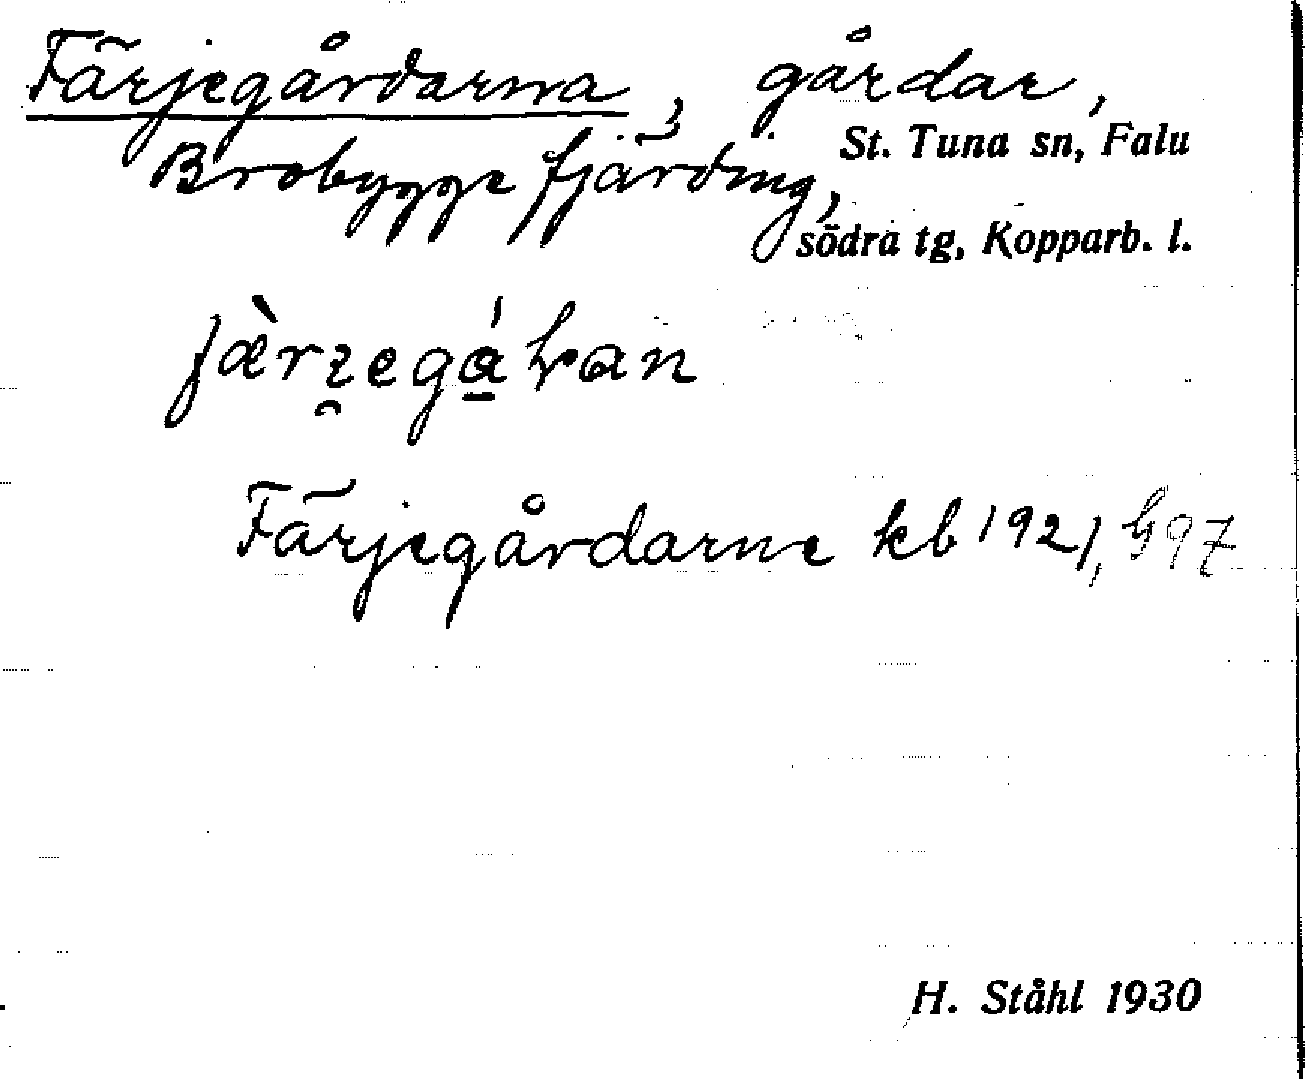 Färjegårdarna, gårdar,
St. Tuna sn, Falu
Brobygge fjärding,
södra tg, Kopparb. l.
Färjegårdarne kb 1921, 597
H. Ståhl 1930